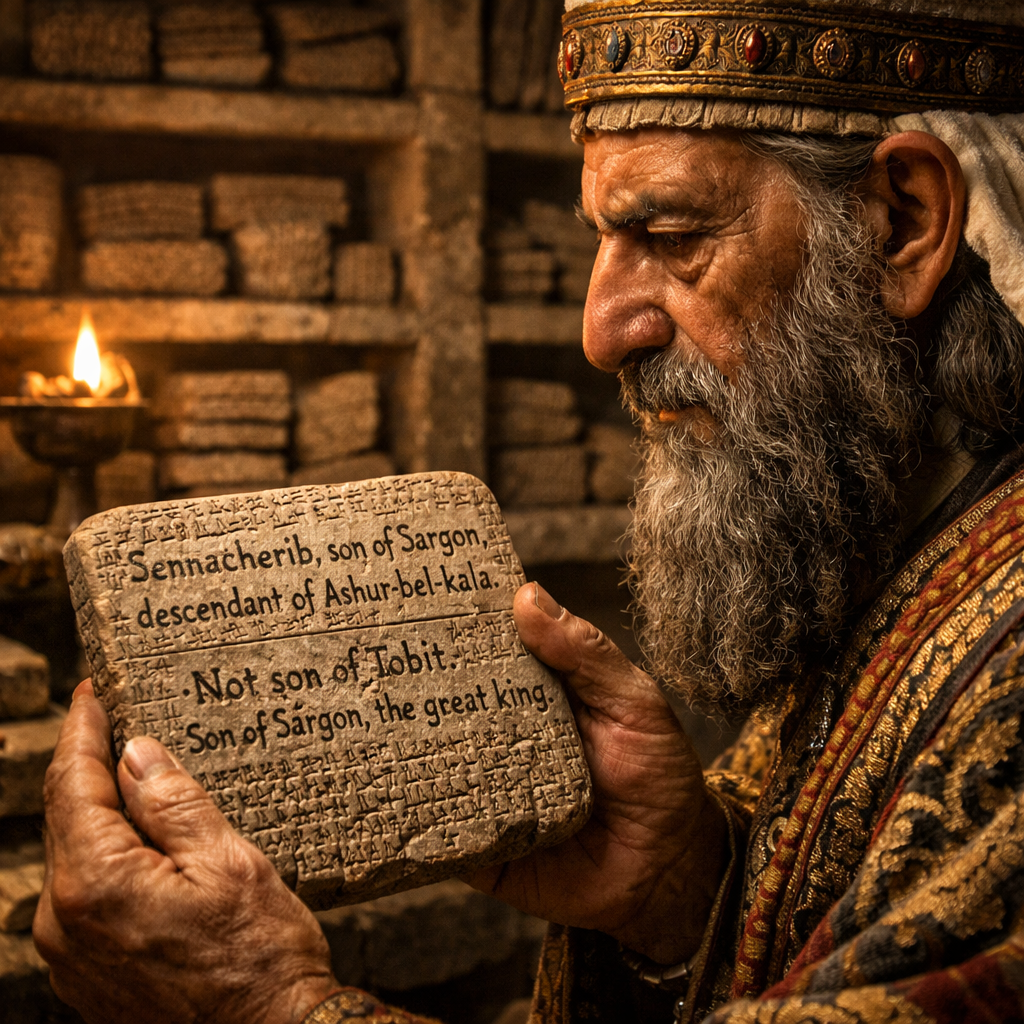 Sennacherib, son of Sargon,
descendant of Ashur-bel-kala.
·Not son of Tobit.
Son of Sárgon, the great king.